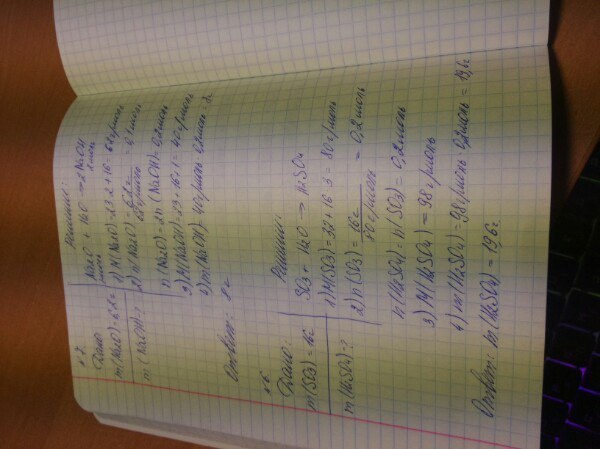 Дано:
m(Na2O) = 6,2г
m(NaOH) - ?
Решение:
Na2O + H2O → 2NaOH
1моль 2моль
1) M(Na2O) = 23·2+16 = 62г/моль
2) n(Na2O) = 6,2г / 62г/моль = 0,1моль
n(Na2O) = 2n(NaOH) = 0,2моль
3) M(NaOH) = 23+16+1 = 40г/моль
4) m(NaOH) = 40г/моль · 0,2моль = 8г
Ответ: 8г
Дано:
m(SO3) = 16г
m(H2SO4) - ?
Решение:
SO3 + H2O → H2SO4
1) M(SO3) = 32+16·3 = 80г/моль
2) n(SO3) = 16г / 80г/моль = 0,2моль
n(H2SO4) = n(SO3) = 0,2моль
3) M(H2SO4) = 98г/моль
4) m(H2SO4) = 98г/моль · 0,2моль = 19,6г
Ответ: m(H2SO4) = 19,6г